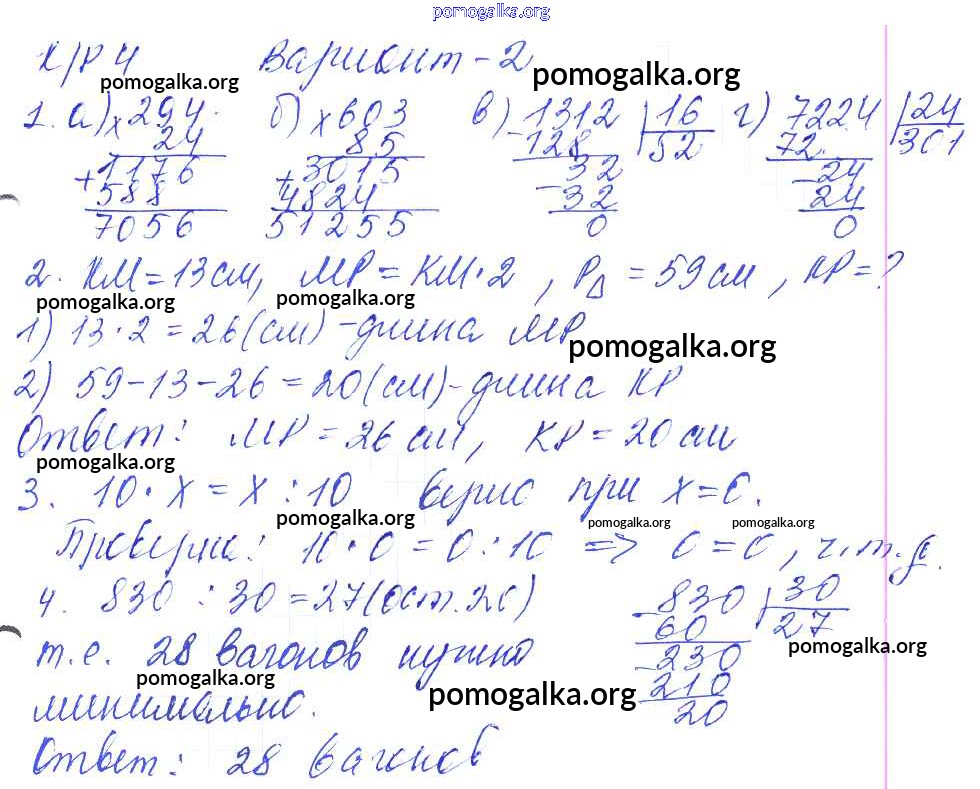 pomogalka.org
К/Р 4 Вариант - 2
pomogalka.org pomogalka.org
1. а) × 294 б) × 603 в) 1312 | 16 г) 7224 | 24
24 85 - 128 52 72 301
+ 1176 + 3015 - 32 - 24
588 4824 32 24
7056 51255 0 0
2. КМ = 13 см, МР = КМ · 2, Р△ = 59 см, КР = ?
pomogalka.org pomogalka.org
1) 13 · 2 = 26 (см) - длина МР
pomogalka.org
2) 59 - 13 - 26 = 20 (см) - длина КР
Ответ: МР = 26 см, КР = 20 см
pomogalka.org
3. 10 · х = х : 10 верно при х = 0.
pomogalka.org pomogalka.org pomogalka.org
Проверка: 10 · 0 = 0 : 10 => 0 = 0, ч.т.д.
4. 830 : 30 = 27 (ост. 20) - 830 | 30
60 27
т.е. 28 вагонов нужно - 230
pomogalka.org
210
pomogalka.org pomogalka.org
минимально. 20
Ответ: 28 вагонов